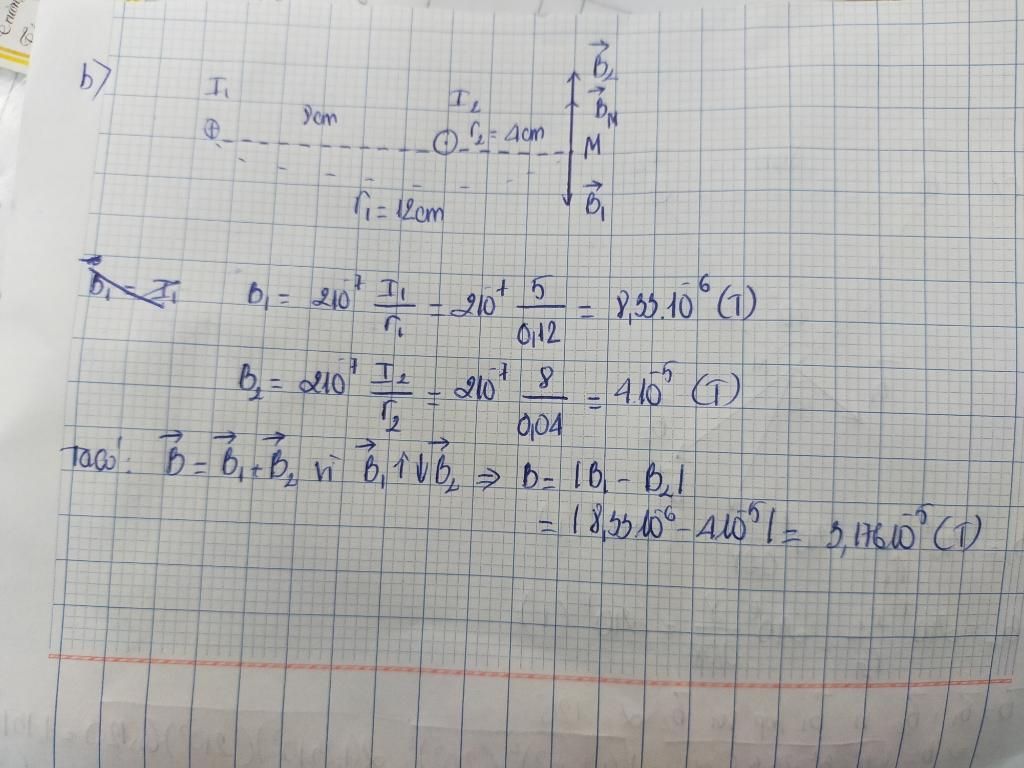 b)
I₁ 8cm I₂ r₂ = 4cm
B⃗₂
B⃗M
M
B⃗₁
r₁ = 12cm
B₁ = 2.10⁻⁷ I₁/r₁ = 2.10⁻⁷ 5/0,12 = 8,33.10⁻⁶ (T)
B₂ = 2.10⁻⁷ I₂/r₂ = 2.10⁻⁷ 8/0,04 = 4.10⁻⁵ (T)
Ta có: B⃗ = B⃗₁ + B⃗₂ vì B⃗₁ ↑↓ B⃗₂ ⇒ B = |B₁ - B₂|
= |8,33.10⁻⁶ - 4.10⁻⁵| = 3,176.10⁻⁵ (T)